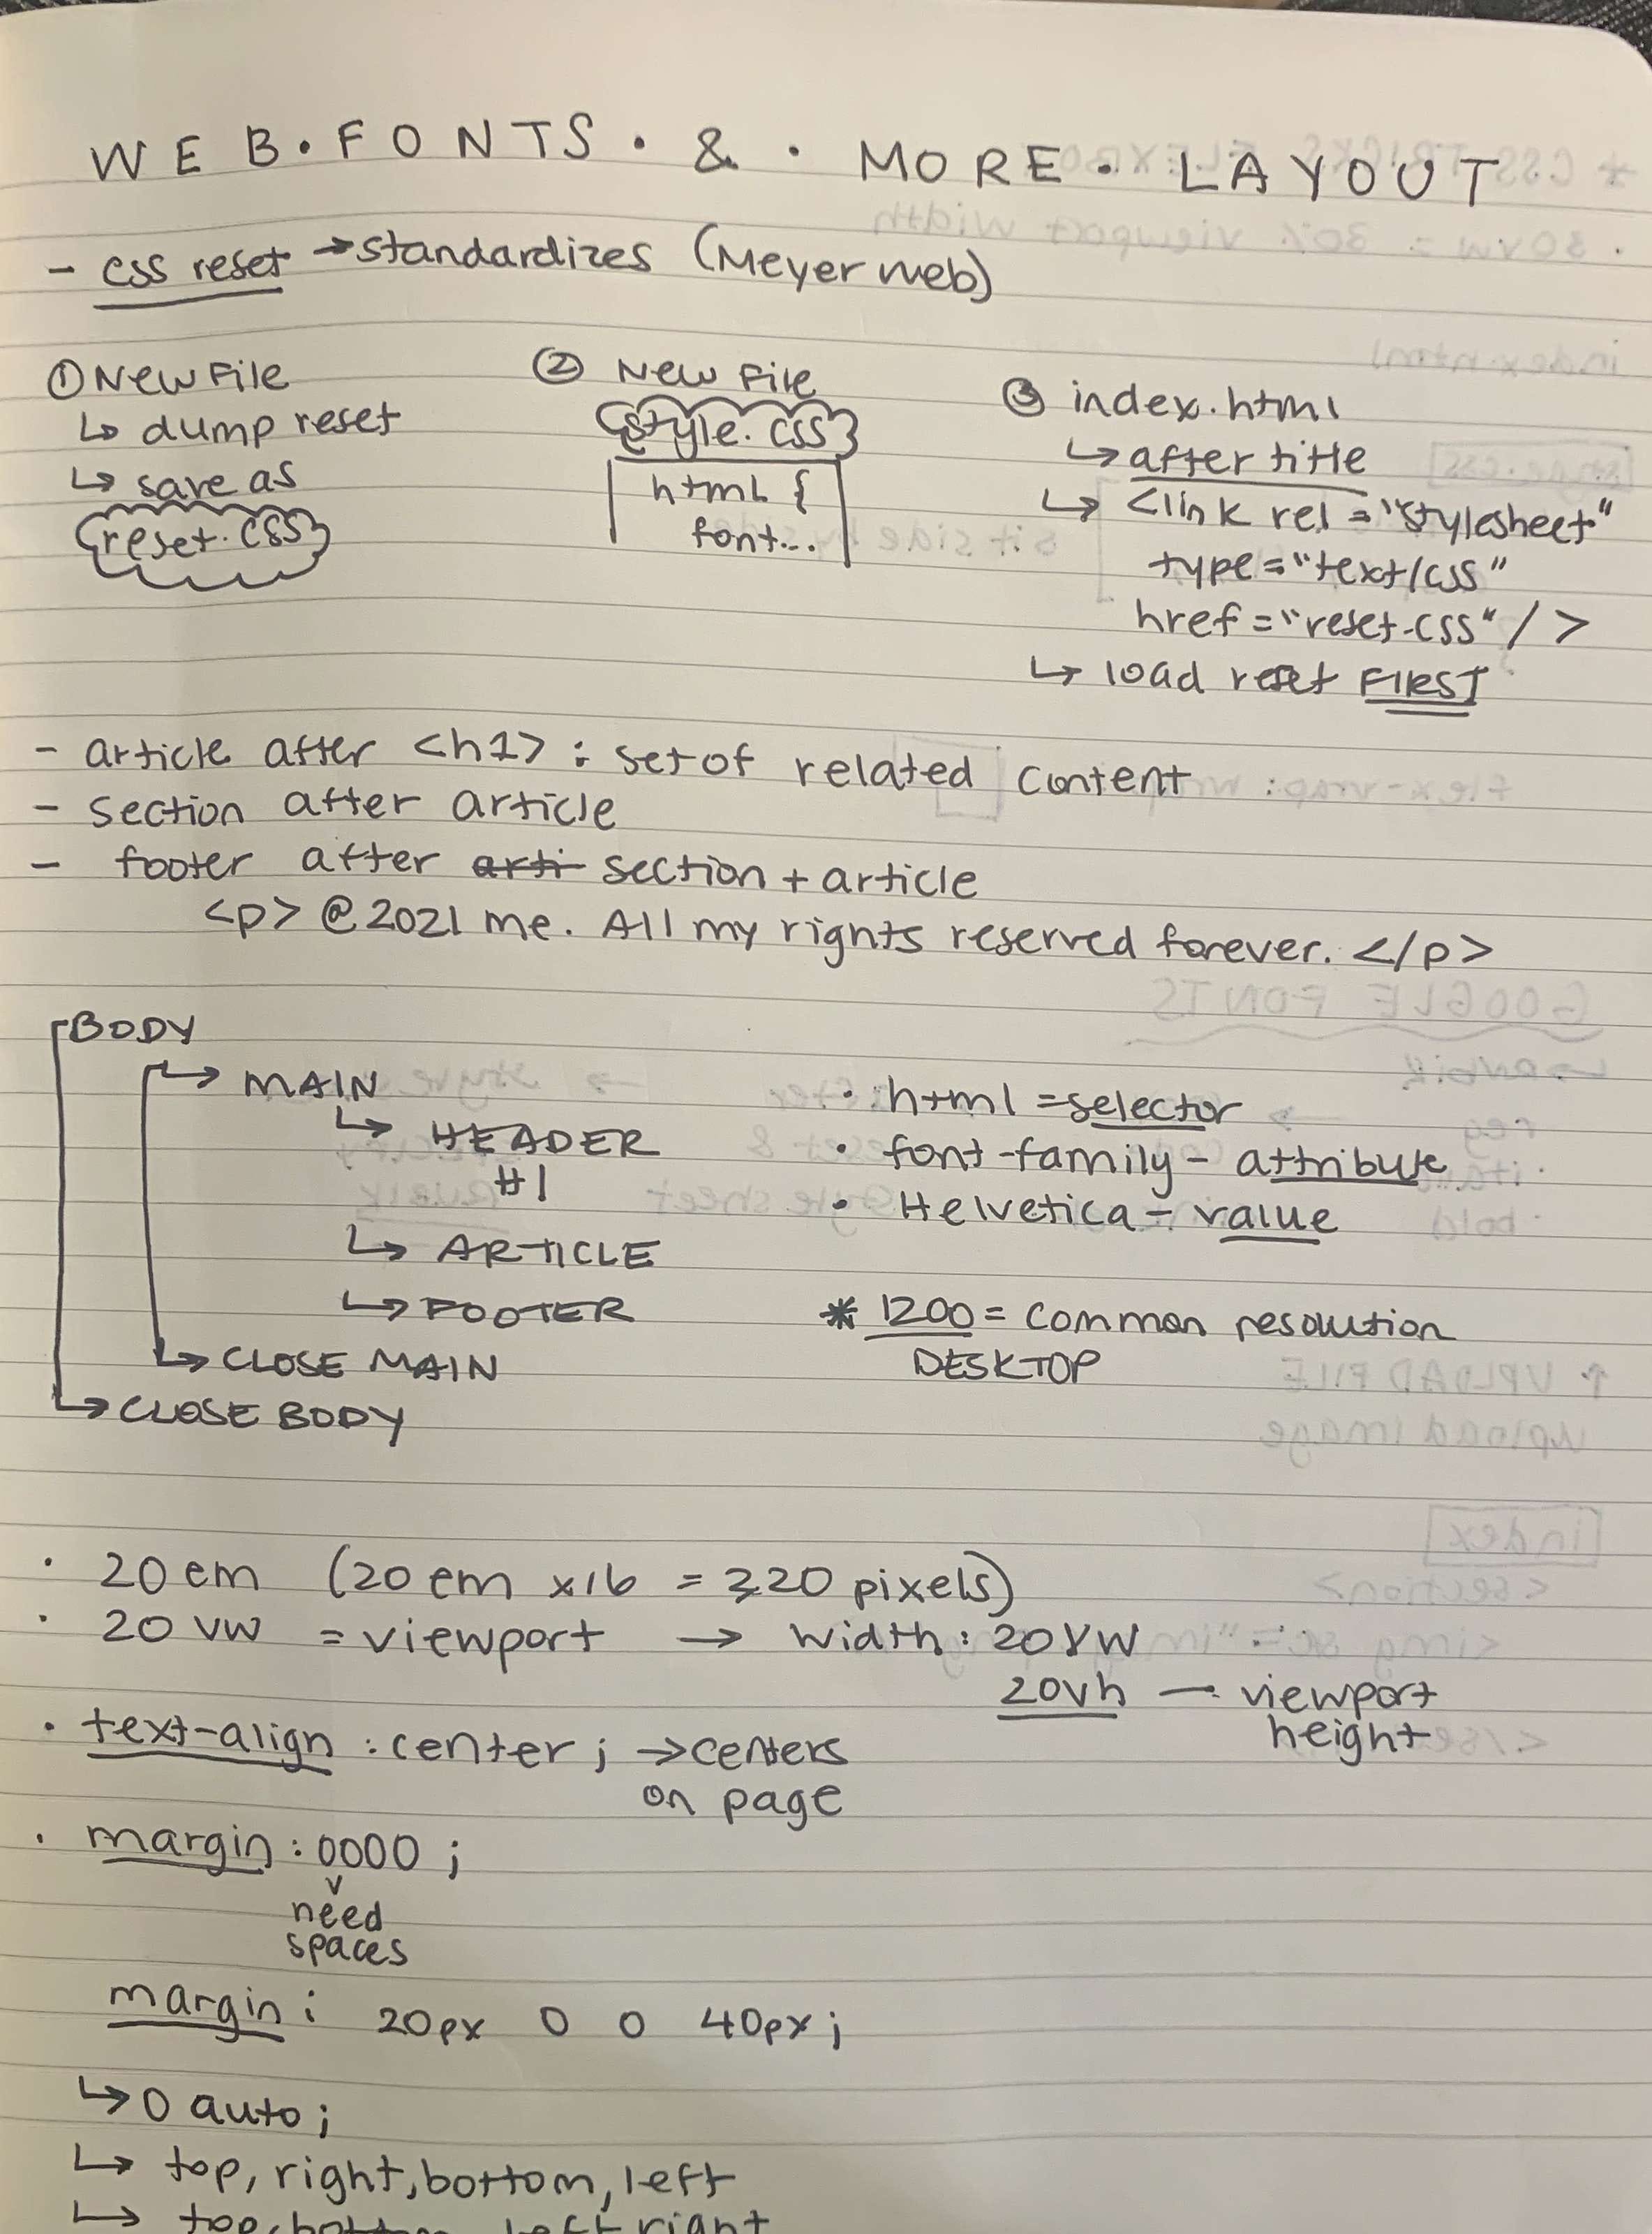 WEB·FONTS·&·MORE·LAYOUT
- css reset → standardizes (Meyer web)
① New File
↳ dump reset
↳ save as
reset.css
② New File
style.css
html {
font...
③ index.html
↳ after title
↳ <link rel="stylesheet"
type="text/css"
href="reset.css" />
↳ load reset FIRST
- article after <h1> : set of related content
- section after article
- footer after arti section + article
<p> @ 2021 me. All my rights reserved forever. </p>
BODY
↳ MAIN
↳ HEADER
H1
↳ ARTICLE
↳ FOOTER
↳ CLOSE MAIN
↳ CLOSE BODY
· html = selector
· font-family - attribute
· Helvetica - value
* 1200 = common resolution
DESKTOP
· 20 em (20 em x16 = 320 pixels)
· 20 vw = viewport → width: 20vw
20vh — viewport
height
· text-align : center ; → centers
on page
· margin : 0000 ;
need
spaces
margin : 20px 0 0 40px ;
↳ 0 auto ;
↳ top, right, bottom, left
↳ top, bottom left right